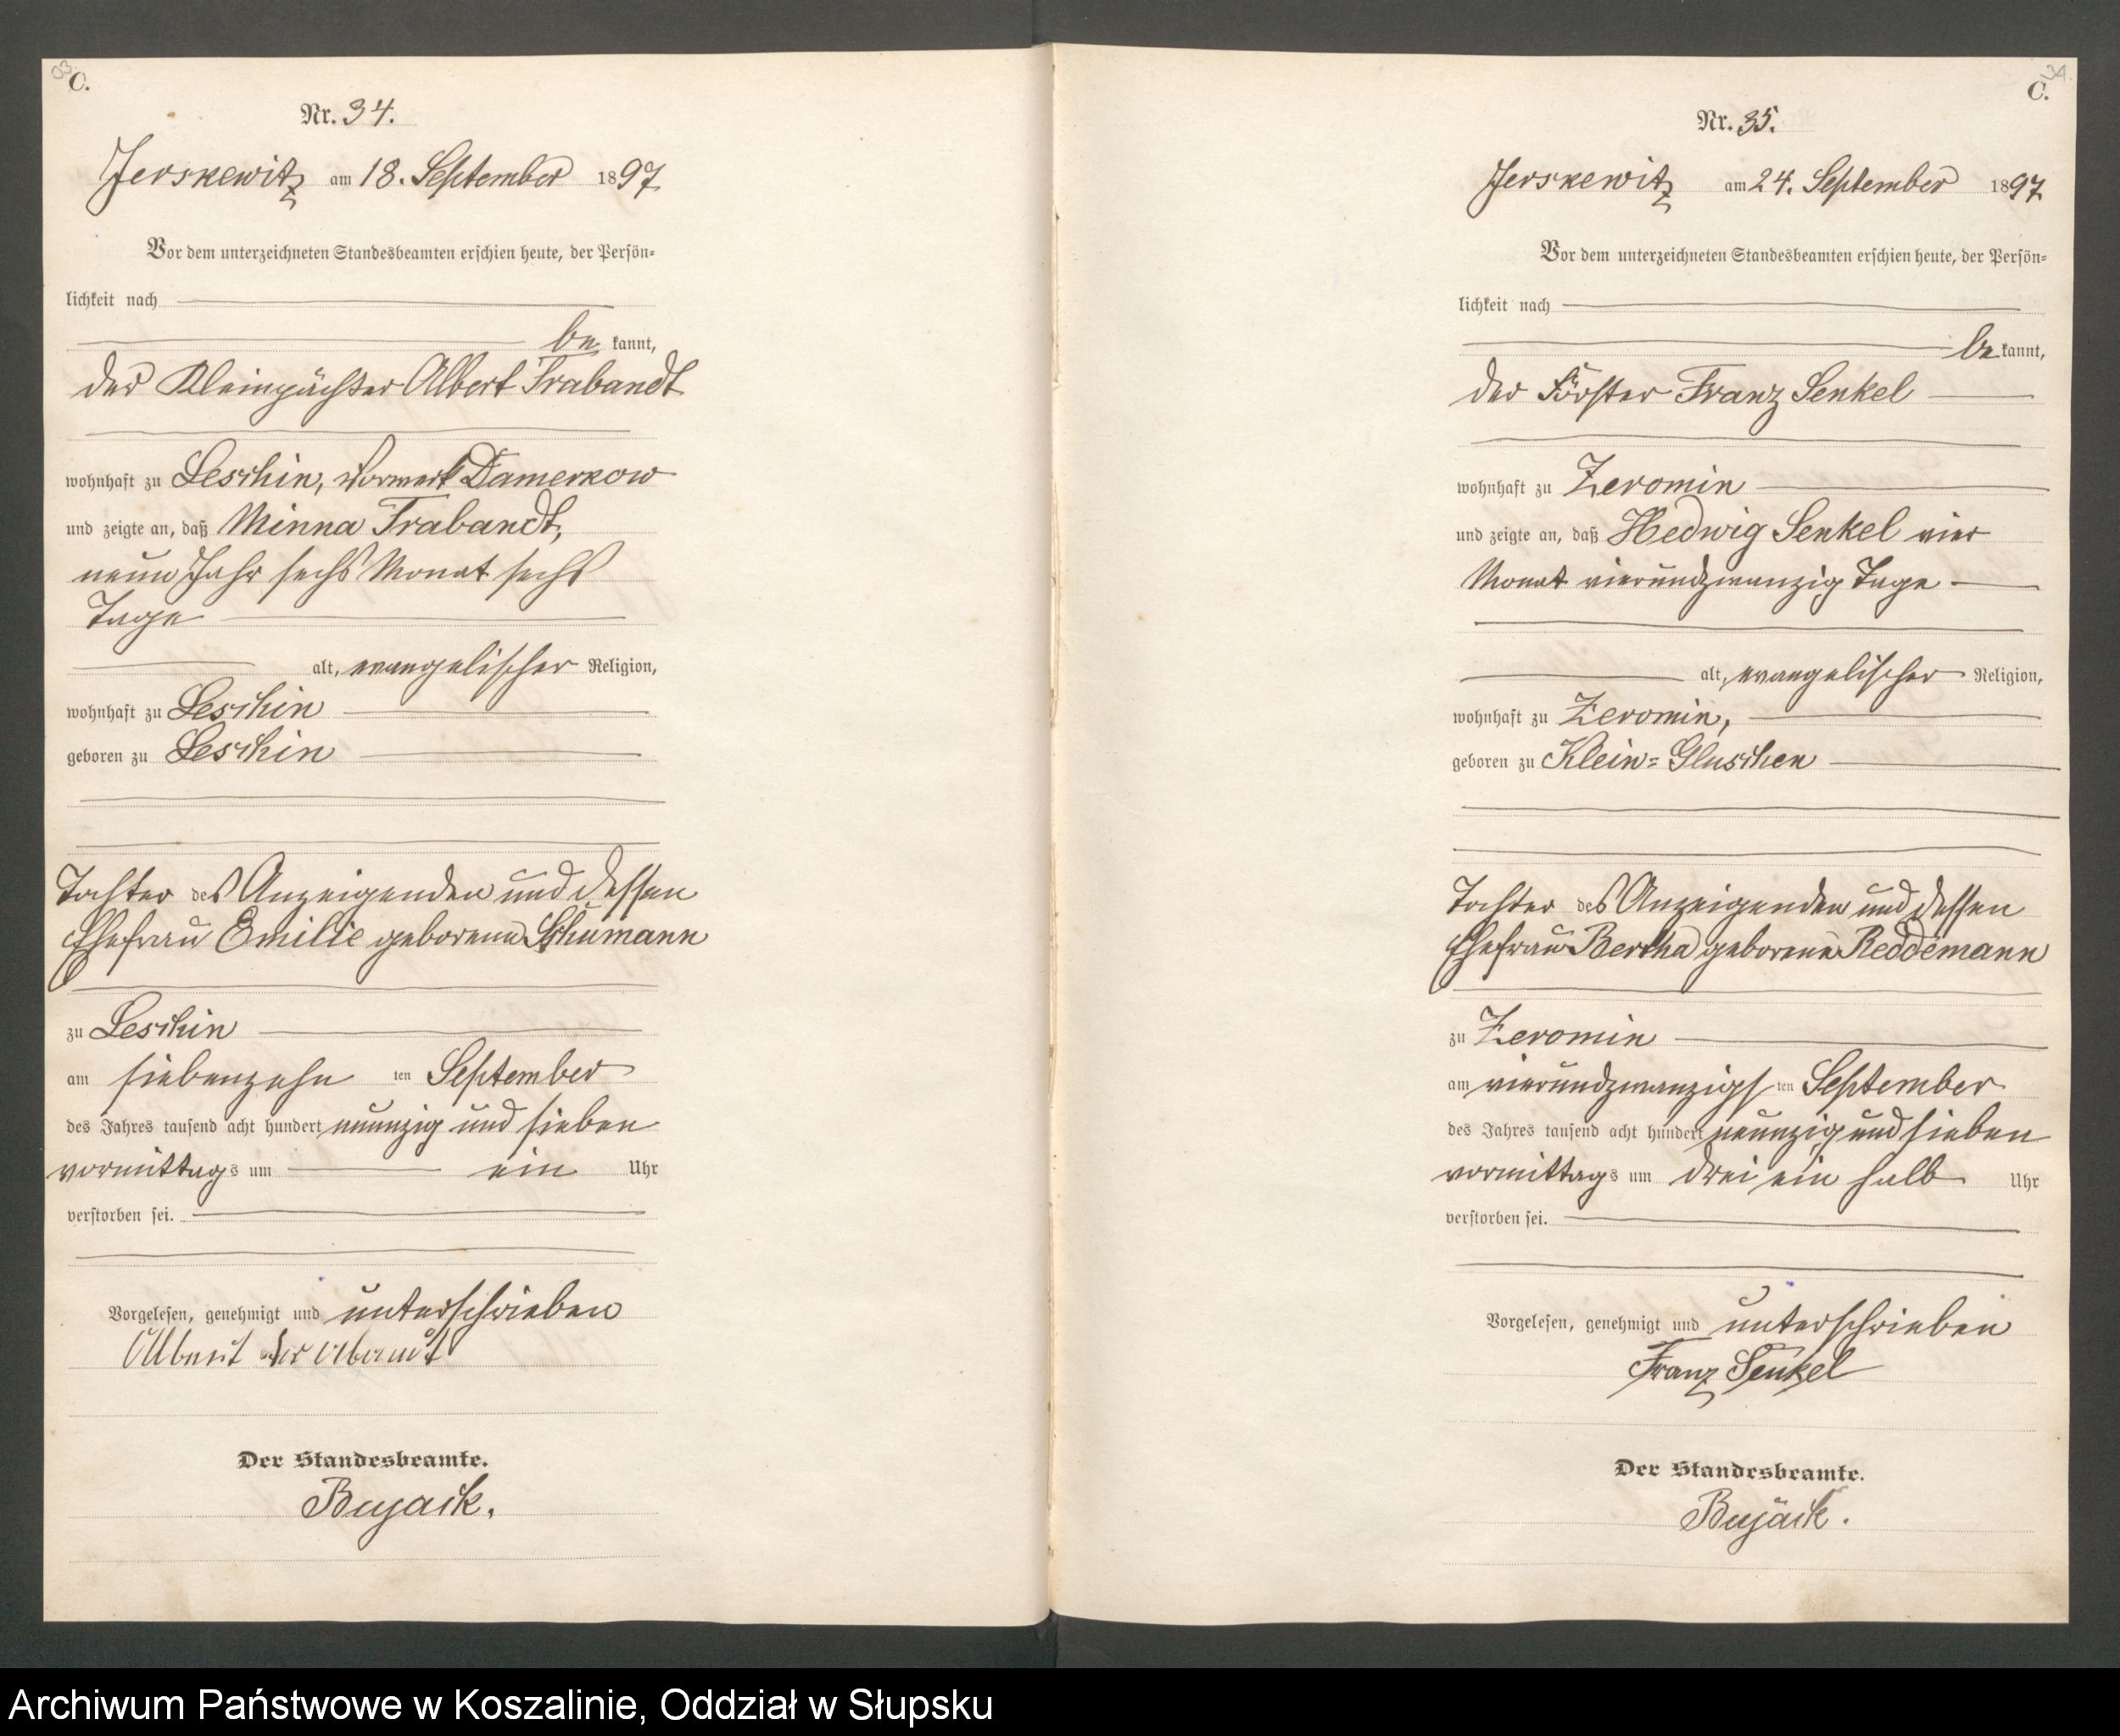 03.
C.
Nr. 34.
Jerskewitz am 18. September 1897
Vor dem unterzeichneten Standesbeamten erschien heute, der Persön-
lichkeit nach
be kannt,
der Kleinpächter Albert Trabandt
wohnhaft zu Leschin, Vorwerk Damerkow
und zeigte an, daß Minna Trabandt,
neun Jahr sechs Monat sechs
Tage
alt, evangelischer Religion,
wohnhaft zu Leschin
geboren zu Leschin
Tochter des Anzeigenden und dessen
Ehefrau Emilie geborene Schumann
zu Leschin
am siebenzehn ten September
des Jahres tausend acht hundert neunzig und sieben
vormittags um ein Uhr
verstorben sei.
Vorgelesen, genehmigt und unterschrieben
Albert Trabandt
Der Standesbeamte.
Bujack.
34.
C.
Nr. 35.
Jerskewitz am 24. September 1897
Vor dem unterzeichneten Standesbeamten erschien heute, der Persön-
lichkeit nach
be kannt,
der Förster Franz Senkel
wohnhaft zu Zeromin
und zeigte an, daß Hedwig Senkel vier
Monat vierundzwanzig Tage
alt, evangelischer Religion,
wohnhaft zu Zeromin,
geboren zu Klein-Gluschen
Tochter des Anzeigenden und dessen
Ehefrau Bertha geborene Reddemann
zu Zeromin
am vierundzwanzigs ten September
des Jahres tausend acht hundert neunzig und sieben
vormittags um drei ein halb Uhr
verstorben sei.
Vorgelesen, genehmigt und unterschrieben
Franz Senkel
Der Standesbeamte.
Bujack.
Archiwum Państwowe w Koszalinie, Oddział w Słupsku